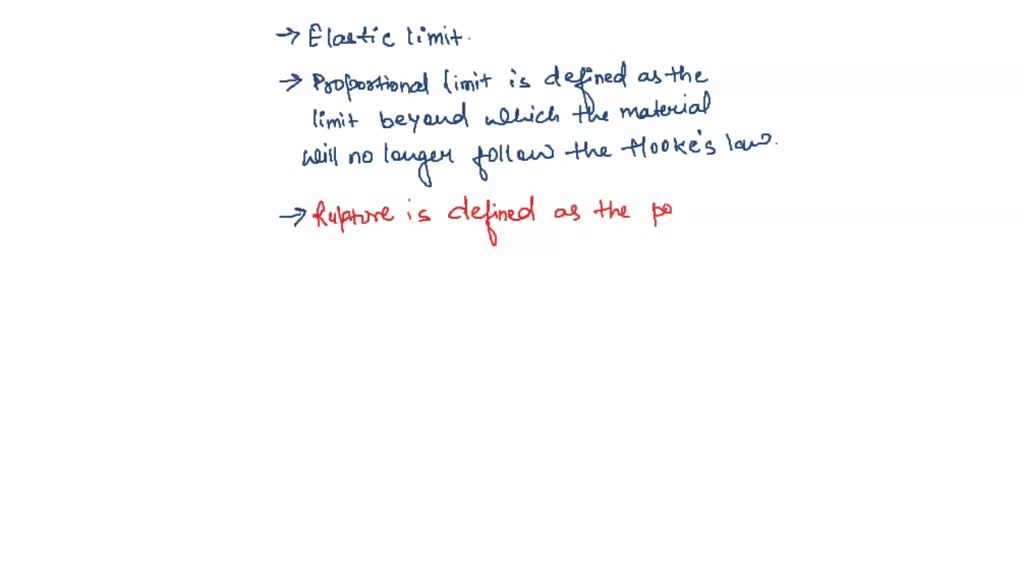 → Elastic limit.
→ Proportional limit is defined as the
limit beyond which the material
will no longer follow the Hooke's law.
→ Rupture is defined as the po